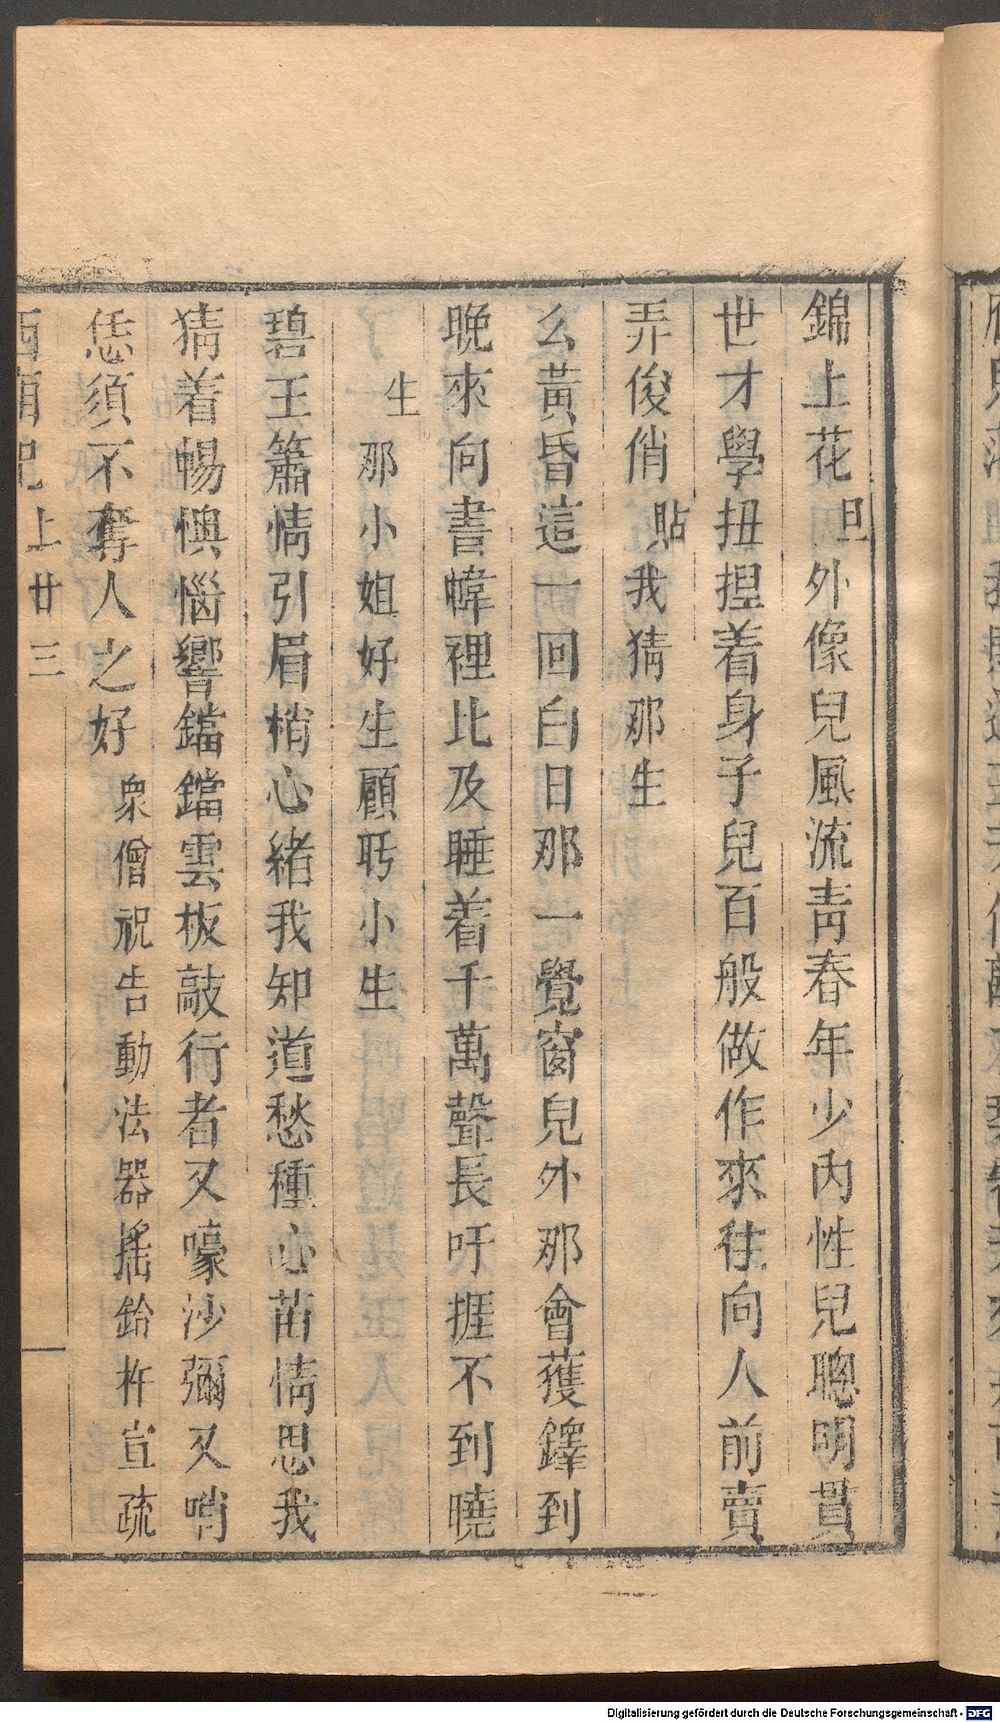 錦上花 旦 外像兒風流靑春年少內性兒聰明貫
世才學扭揑着身子兒百般做作來徃向人前賣
弄俊俏 貼 我猜那生
么黃昏這一回白日那一覺窗兒外那會獲鐸到
晚來向書幃裡比及睡着千萬聲長吁捱不到曉
生 那小姐好生顧盻小生
碧王簫情引眉梢心緒我知道愁種心苗情思我
猜着暢懊惱響鐺鐺雲板敲行者又嚎沙彌又哨
恁須不奪人之好 衆僧祝告動法器搖鈴杵宣疏
西廂記上 廿三
Digitalisierung gefördert durch die Deutsche Forschungsgemeinschaft - DFG